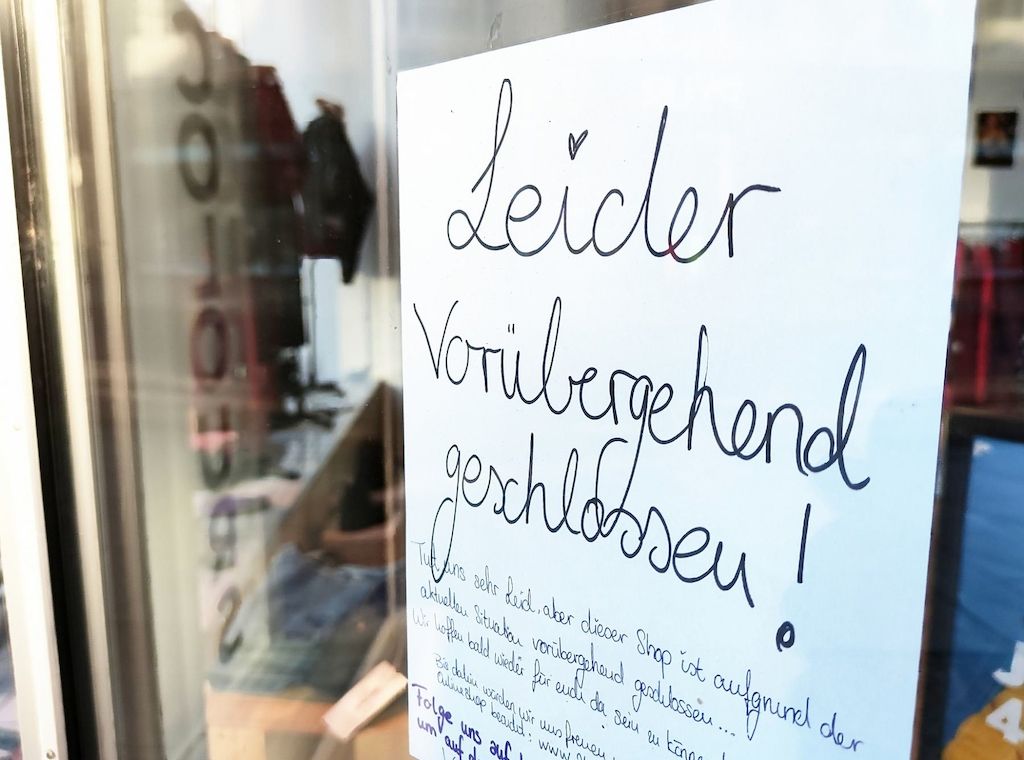 Leider
Vorübergehend
geschlossen!
Tut uns sehr Leid, aber dieser Shop ist aufgrund der
aktuellen Situation vorübergehend geschlossen...
Wir hoffen bald wieder für euch da sein zu
Bis dahin würden wir uns freuen
Onlineshop www.
Folge uns auf
um auf
J
4